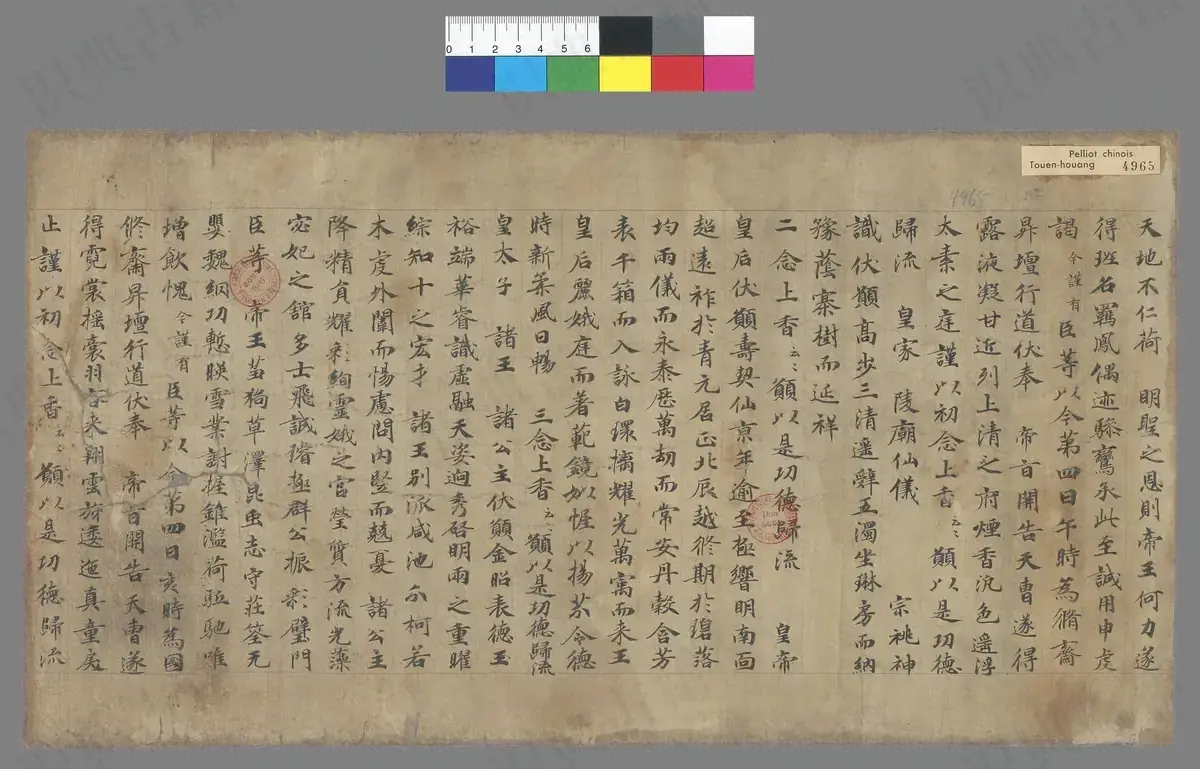 Pelliot chinois
Touen-houang 4965
4965
0 1 2 3 4 5 6
天地不仁荷 明聖之恩則帝王何力遂
得班名羈鳳偶迹驂鸞承此至誠用申虔
謁 今謹有 臣等以今第四日午時為脩齋
昇壇行道伏奉 帝旨開告天曹遂得
露液凝甘近列上清之府煙香沉色遥浮
太素之庭謹以初念上香云云願以是功德
歸流 皇家 陵廟仙儀 宗祧神
識伏願高步三清遥辞五濁坐琳房而納
豫蔭騫樹而延祥
二念上香云云願以是功德歸流 皇帝
皇后伏願壽契仙京年逾至極響明南面
超遠祚於青元居正北辰越脩期於碧落
均兩儀而永泰歷萬劫而常安丹穀含芳
表千箱而入詠白環摛耀光萬寓而来王
皇后麗娥庭而著範鏡姒幄以揚芬令德
時新柔風日暢 三念上香云云願以是功德歸流
皇太子 諸王 諸公主伏願金昭表德玉
裕端華睿識虛融天姿迥秀啓明兩之重曜
綜知十之宏才 諸王別派咸池分柯若
木虔外闈而惕慮問内竪而兢憂 諸公主
降精貟耀彩絢靈娥之宫瑩質方流光藻
宓妃之舘多士飛誠璿極群公振彩璧門
臣等 帝王茧猶草澤昆虫志守莊筌元
嬰魏網功慙映雪業謝握錐濫荷驅馳唯
增飲愧 今謹有 臣等以今第四日亥時為國
脩齋昇壇行道伏奉 帝旨開告天曹遂
得霓裳摇裔羽字来翔雲旂逶迤真童戾
止謹以初念上香云云願以是功德歸流